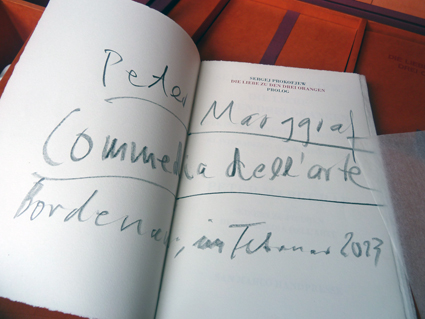 SERGEJ PROKOFJEW
DIE LIEBE ZU DEN DREI ORANGEN
PROLOG
Peter Marggraf
Commedia dell'arte
Bordenau, im Februar 2023